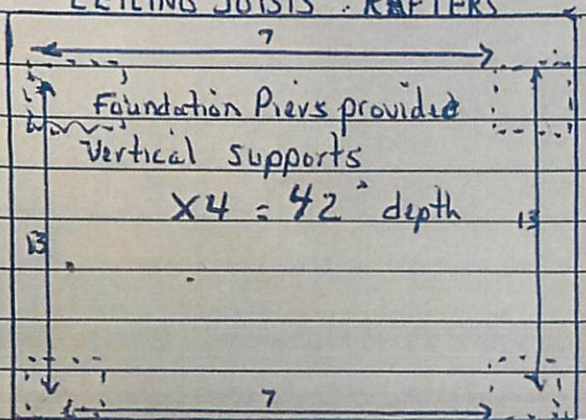 CEILING JOISTS : RAFTERS
7
Foundation Piers provided
Vertical supports
X4 = 42" depth
13
13
7